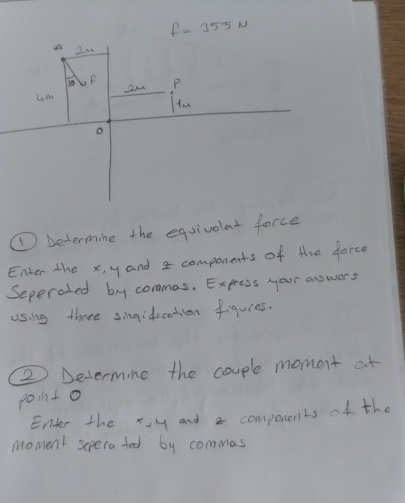 f = 355 N
A
2m
f
4m
2m
P
1m
O
① Determine the equivolat force
Enter the x, y and z components of the force
Seperated by commas. Express your answers
using three singidication figures.
② Determine the couple moment at
point O
Enter the x, y and z components of the
moment seperated by commas